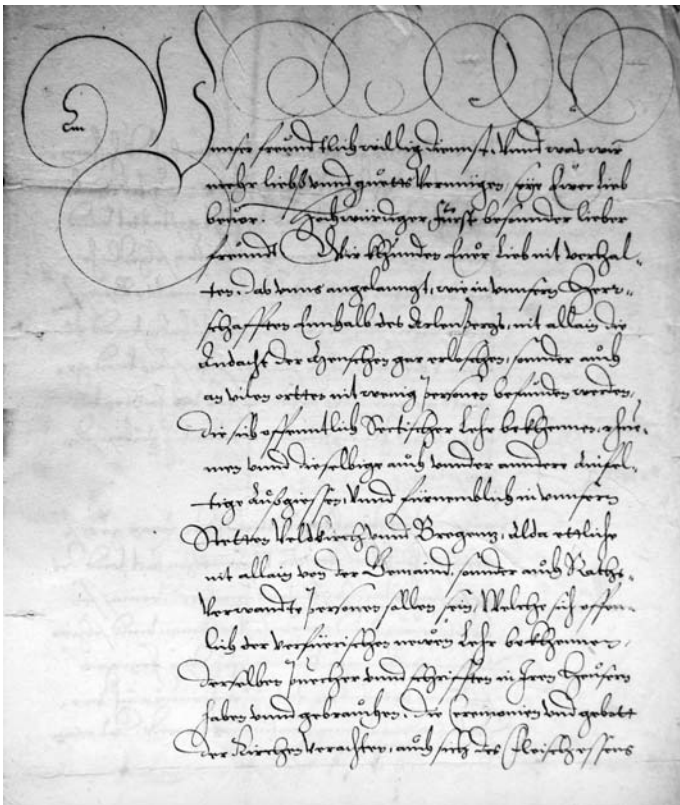 Unnser freundtlich willig diennst, Unnd was wir
mehr liebs unnd guetts vermügen, seye Euer Lieb
bevor. Hochwürdiger Fürst besonder lieber
freundt Wir khünden Euer Lieb nit verhal-
ten, das unns angelanngt, wie in unnsern Herr-
schafften Ennhalb des Arlenpergs, nit allain die
Andacht der Menschen gar erloschen, sonnder auch
an vilen orten nit wenig personen befunden werden,
die sich offenntlich Sectischer Lehr bekhennen,
unnd dieselbige auch unnder anndere Ainfel-
tige Außgiessen, Unnd fürnemblich in unnsern
Stetten Veldkirch unnd Bregenz, alda ettliche
nit allain von der Gemaind, sonder auch Raths-
Verwandte personen sollen sein, Welche sich offen-
lich der verfüerischen newen Lehr bekhennen,
derselben puecher unnd schrifften in Iren Heusern
haben unnd gebrauchen, die Ceremonien und gebott
der Kirchen verachten, auch sich des Fleischessens